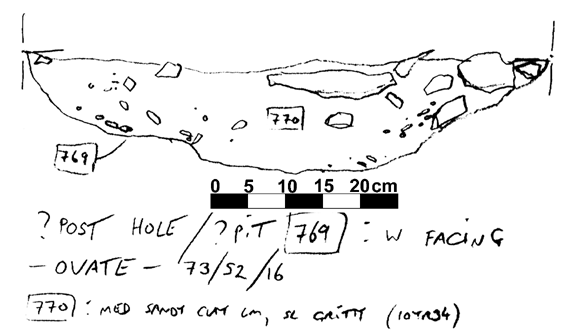 770
769
0 5 10 15 20 cm
? POST HOLE / ? PIT 769 : W FACING
- OVATE - 73/52/16
770 : MED SANDY CLAY LM, SL GRITTY (10YR34)